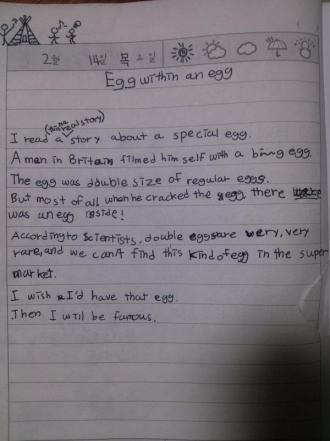 2월 14일 목요일
Egg within an egg
(this is a real story)
I read a story about a special egg.
A man in Britain filmed him self with a big egg.
The egg was double size of regular eggs.
But most of all when he cracked the egg, there
was an egg inside!
According to scientists, double eggs are very, very
rare, and we can't find this kind of egg in the super
market.
I wish I'd have that egg.
Then I will be famous.